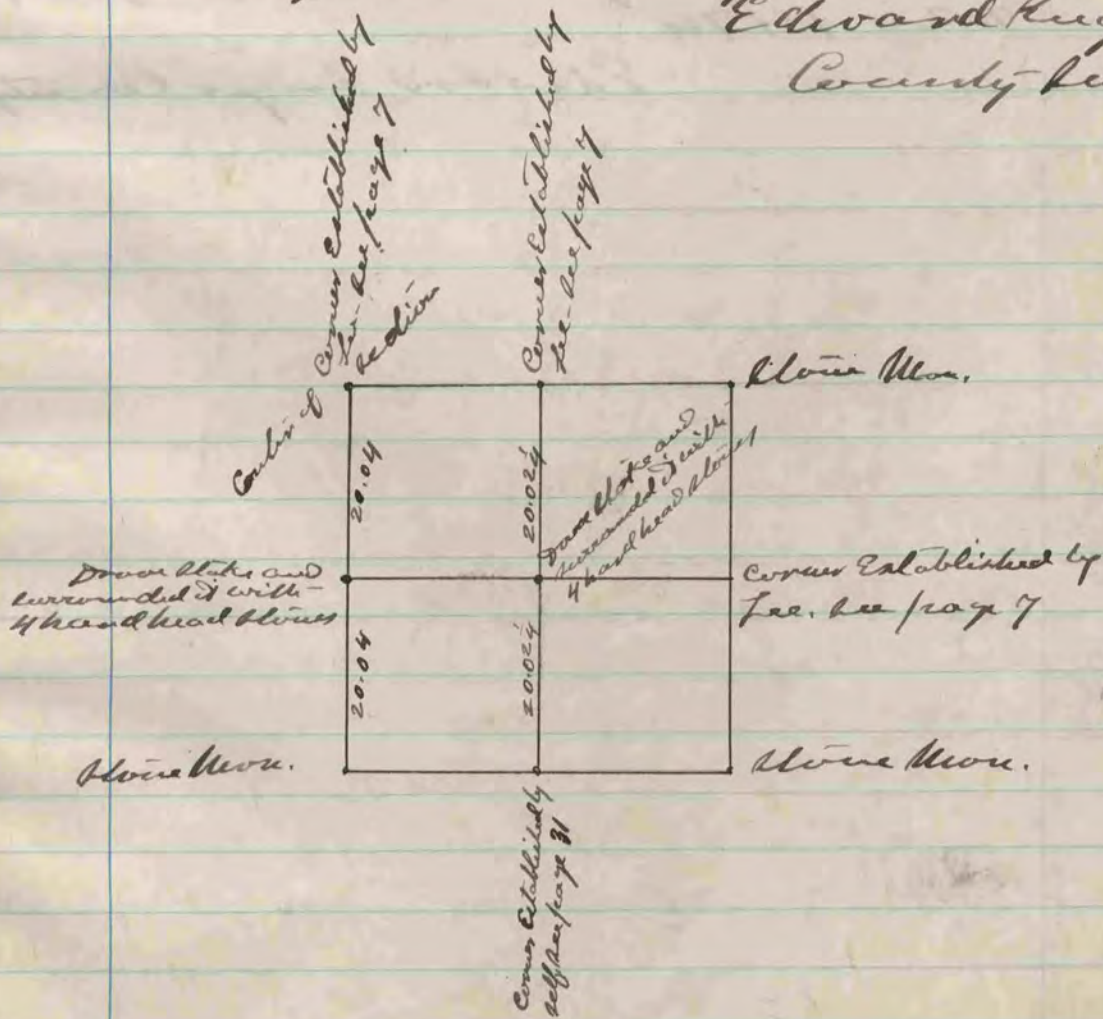 Edward
County
Corner Established by
Lee - See page 7
Center of Section
Corner Established by
Lee - See page 7
Stone Mon.
20.04
20.02¼
Drove Stake and
surrounded it with
4 hand head stones
Drove Stake and
surrounded it with
4 hand head stones
Corner Established by
Lee. See page 7
20.04
20.02¼
Stone Mon.
Stone Mon.
Corner Established by
self See page 31